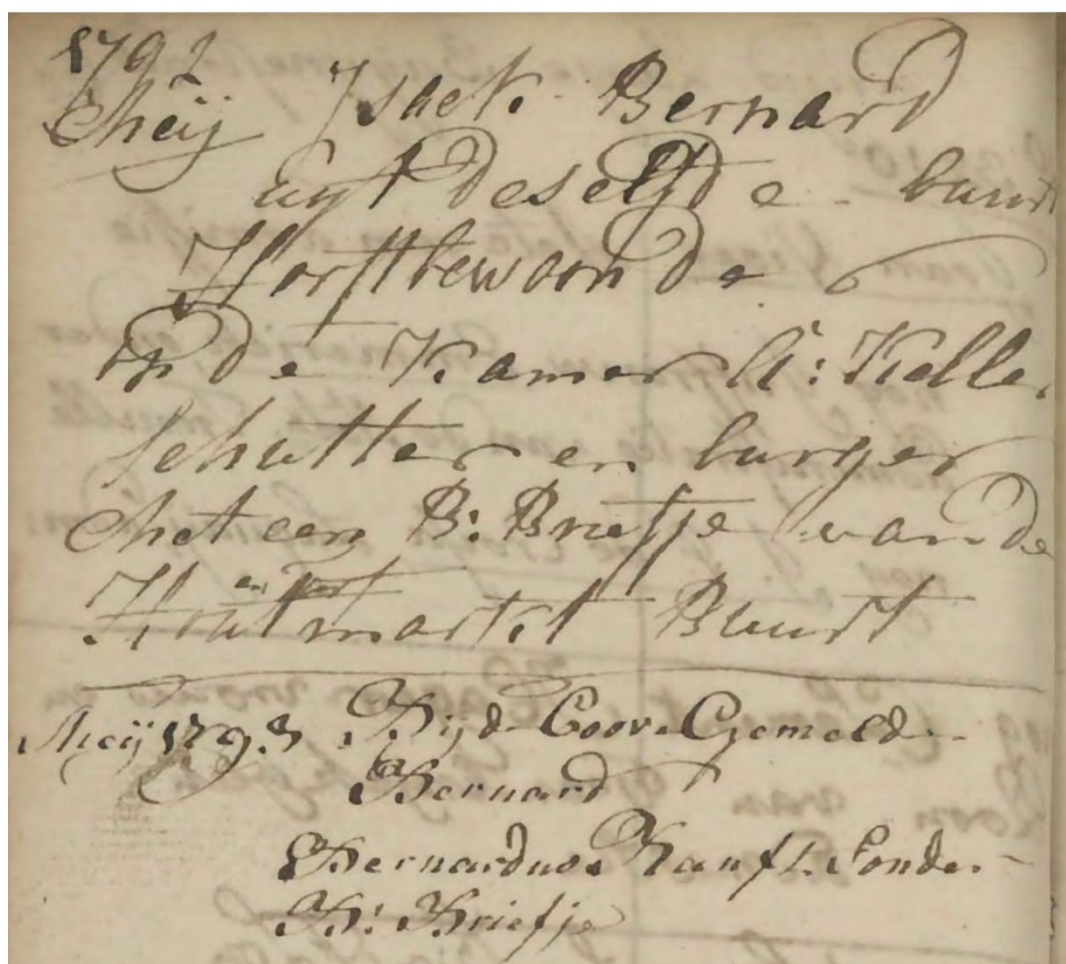 1792
Meij Isack Bernard
uyt deselfde buurt
Horst bewoonde
op de Kamer A: Keller
Schutter en burger
Met een B: Briefje van de
en turf
Houtmarkt Buurt
Meij 1793 Bijd Voor Gemeld
Bernard
Bernardus Sonder
B: Briefje